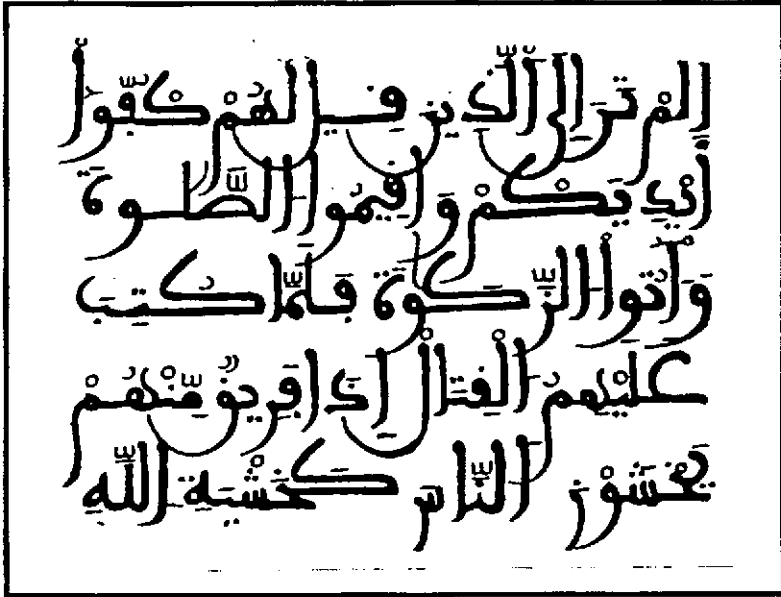 أَلَمْ تَرَ إِلَى الَّذِينَ قِيلَ لَهُمْ كُفُّوا
أَيْدِيَكُمْ وَأَقِيمُوا الصَّلَوةَ
وَءَاتُوا الزَّكَوةَ فَلَمَّا كُتِبَ
عَلَيْهِمُ الْقِتَالُ إِذَا فَرِيقٌ مِّنْهُمْ
يَخْشَوْنَ النَّاسَ كَخَشْيَةِ اللَّهِ